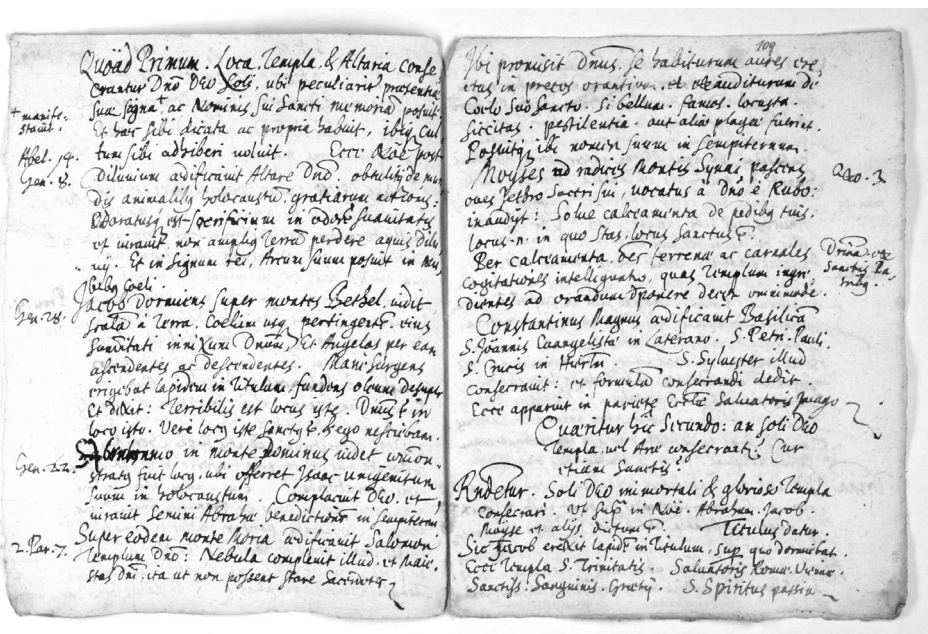 Quoad Primum. Loca, Templa, & Altaria conse
crantur Dno Deo Soli, ubi peculiarit praesentiae
suae signa, ac Nominis sui Sancti memoriam posuit.
+ manife-
stavit.
Et haec sibi dicata ac propria habuit, ibiq cul
tum sibi adhiberi voluit. Ecce Noë post
Gen. 8.
Diluvium aedificavit Altare Dno. obtulitq de mun
dis animalibq holocaustu, gratiarum actionis:
Odoratusq est sacrificium in odore suavitatis
et iuravit, non ampliq terra perdere aquis Dilu
vij. Et in signum rei, Arcum suum posuit in nu
bibq Coeli.
Gen. 28.
Jacob dormiens super montes Bethel, vidit
scala à terra, Coelum usq pertingente, eius
summitati innixum Dnum, Et Angelos per eam
ascendentes ac descendentes. Mani surgens
erigebat lapidem in titulum, fundens oleum desuper
Et dixit: Terribilis est locus iste. Dnus in
loco isto. Vere locq iste sanctq & ego nesciebam.
Gen. 22.
in monte Dominus videt
stratq fuit locq, ubi offerret Isaac unigenitum
suum in holocaustum. Complacuit Deo, et
iuravit semini Abrahae benedictione in sempiternu
2. Par. 7.
Super eodem monte Moria aedificavit Salomon
Templum Dno: Nebula complevit illud, et Maie
stas Dni, ita ut non possent stare Sacerdotes
109
Ubi promisit Dnus, se habiturum aures ere
ctas in preces orantium, et exauditurum de
Coelo suo sancto. Si bellum. fames. locusta.
siccitas. pestilentia. aut aliae plagae fuerint.
Posuitq ibi nomen suum in sempiternum.
Moyses ad radices Montis Synai pascens
Exo. 3
oves Jethro Soceri sui, vocatus à Dno è Rubo:
inaudijt: Solve calceamenta de pedibq tuis.
locus .n. in quo stas, locus sanctus e.
Per calceamenta, des terrenae ac carnales
cogitationes intelliguntur, quas Templum ingre
dientes ad orandum deponere decet omnimode.
Constantinus Magnus aedificavit Basilica
S. Joannis Evangelistae in Laterano. S. Petri. Pauli.
S. Crucis in S. Sylvester illud
consecravit: et formula consecrandi dedit.
Ecce apparuit in pariete Ecclae Salvatoris Imago
Quaeritur hic Secundo: an soli Deo
Templa, vel Arae consecrati: Cur
etiam Sanctis?
Rndetur. Soli Deo immortali & glorioso Templa
consecrari. Ut sup in Noë. Abraham. Jacob.
Moyse et alijs dictum e. Titulus datur.
Sic Jacob erexit lapide in titulum, sup quo dormitat.
Ecce Templa S. Trinitatis. Salvatoris Romae.
Sanctiss: Sanguinis. S. Spiritus passim